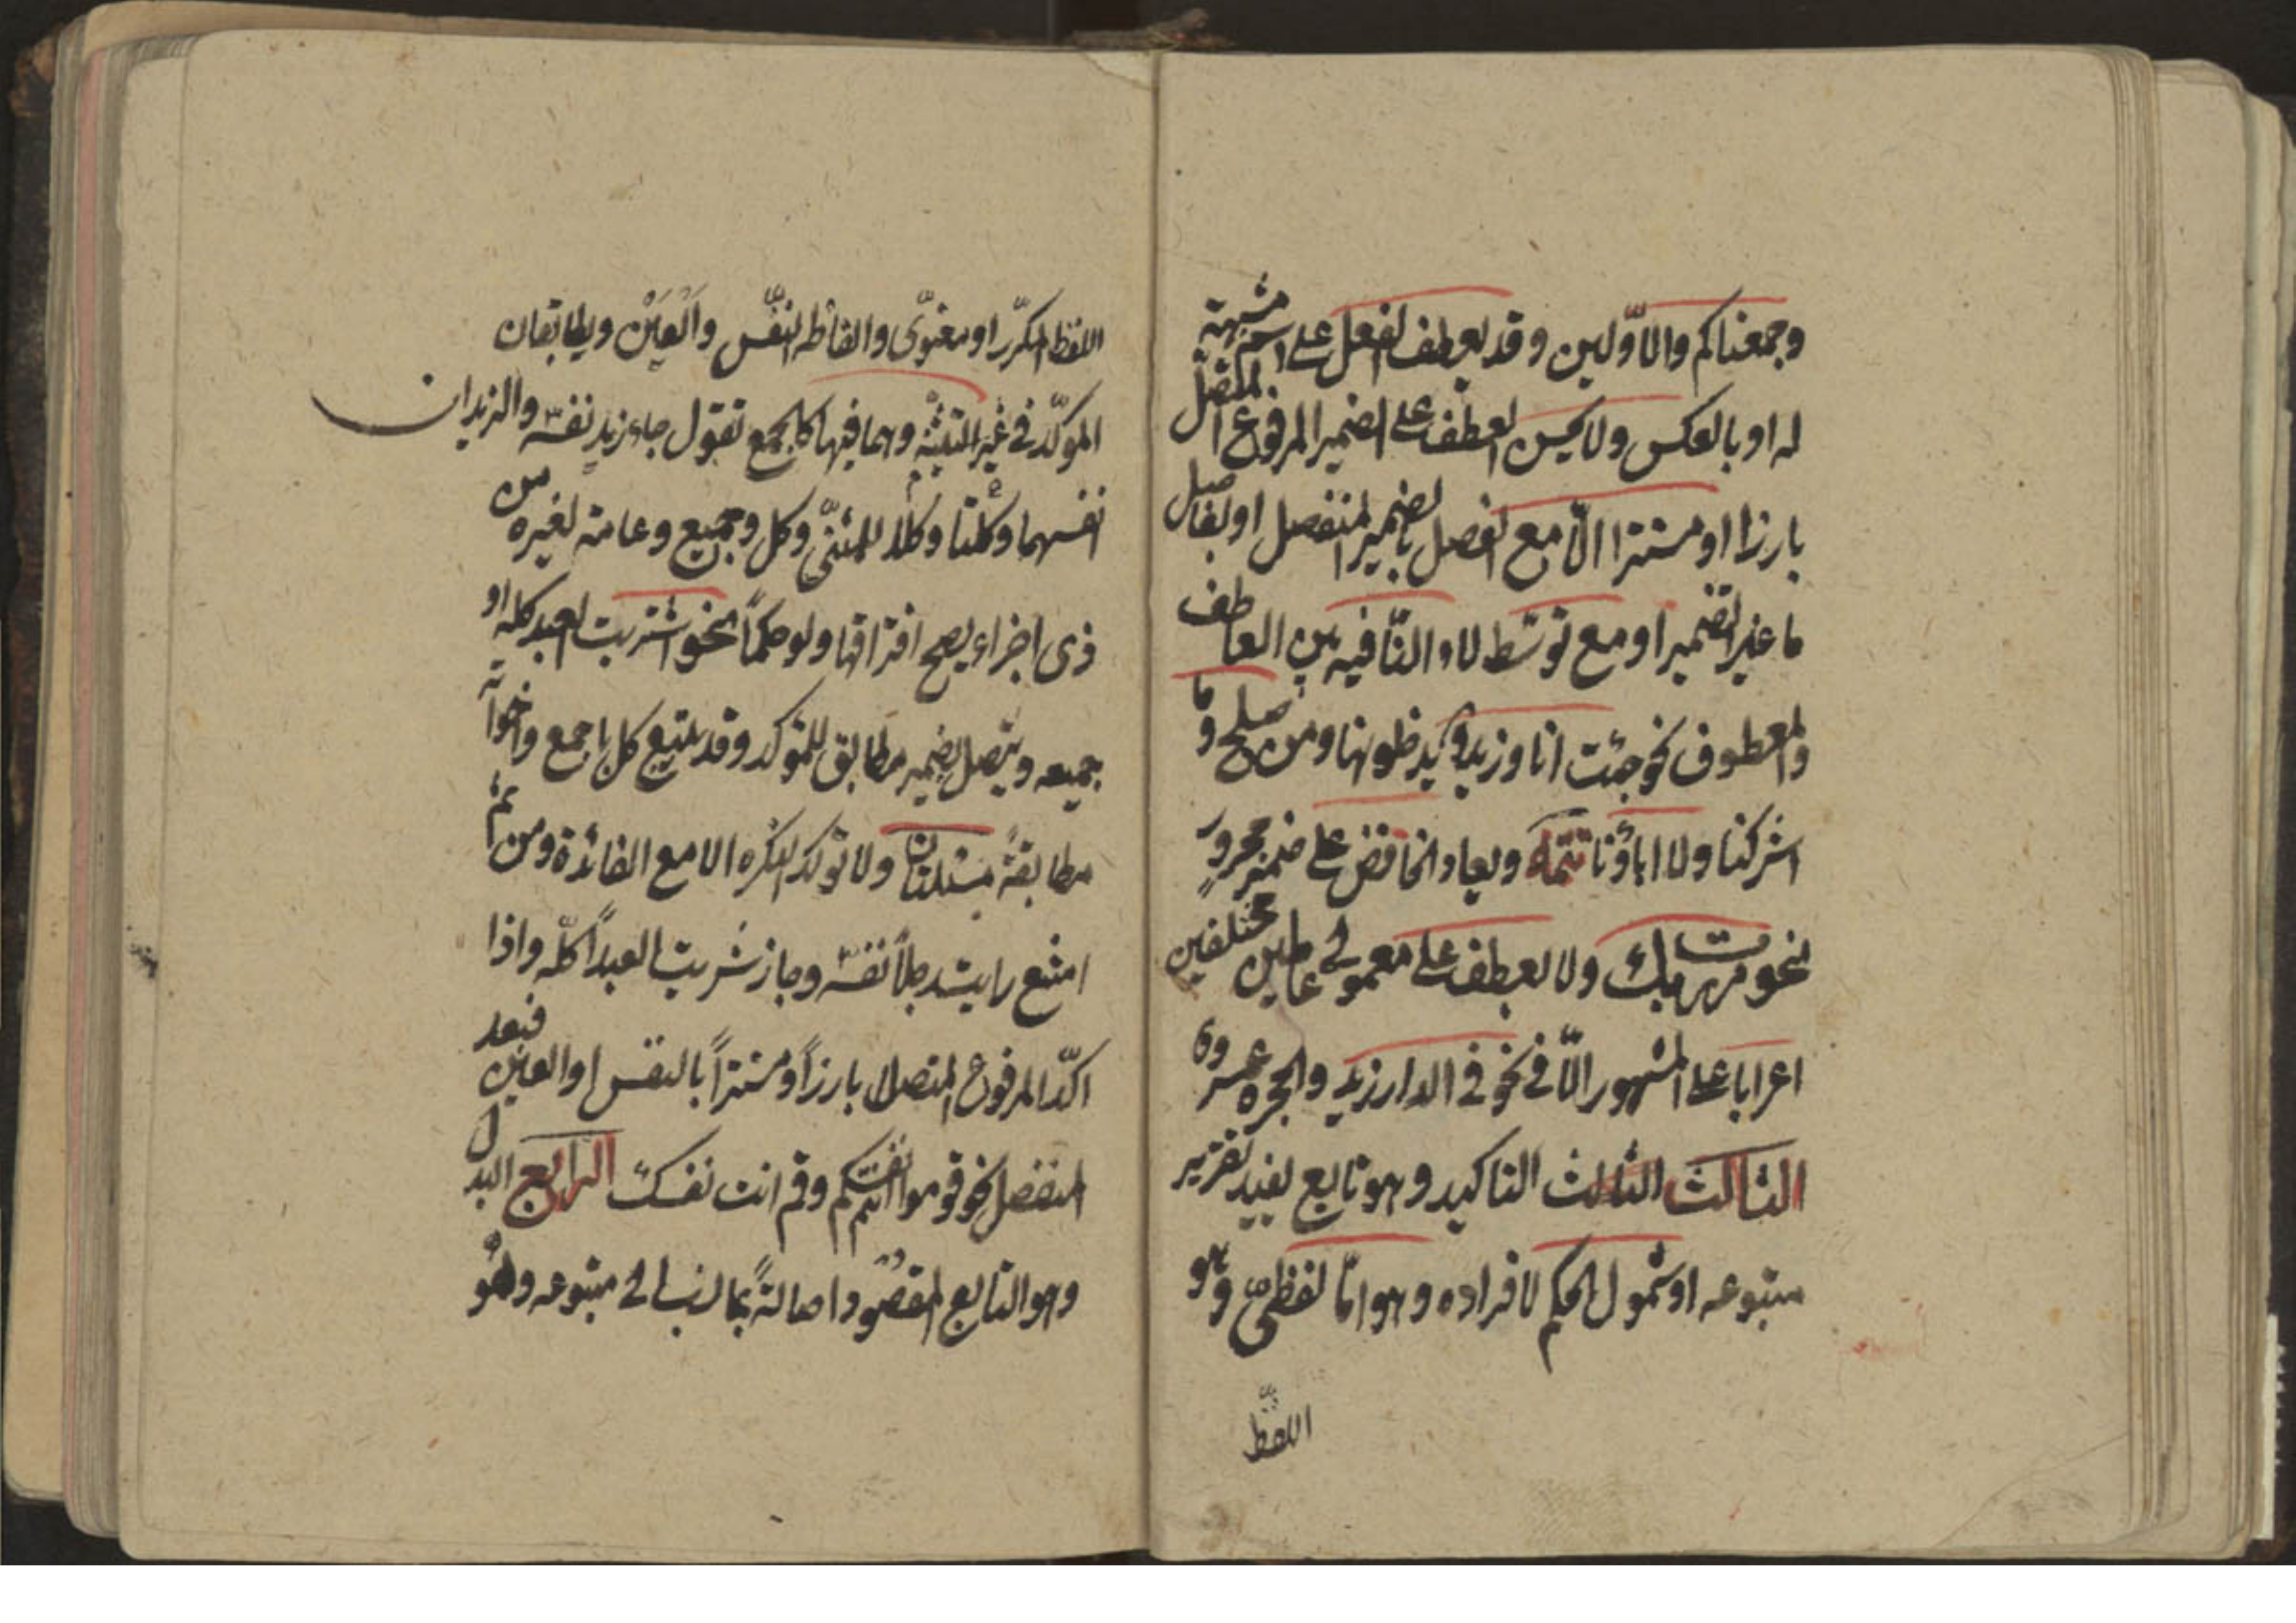 وجمعناكم والاوّلين وقد يعطف الفعل على اسم مشبهة
له او بالعكس ولا يحسن العطف على الضمير المرفوع المتّصل
بارزا او مستترا الّا مع الفصل بالضمير المنفصل او بفاصل
ما غير الضمير او مع توسّط لاء النّافيه بين العاطف
والمعطوف نحو جئت انا وزيد و يدخلونها ومن صلح وما
اشركنا ولا اباؤنا تتمة ويعاد الخافض على ضمير مجرور
نحو مررت بك ولا يعطف على معمولي عاملين مختلفين
اعرابا على المشهور الّا في نحو في الدار زيد والحجره عمرو
الثالث الثالث التاكيد وهو تابع يفيد تقرير
متبوعه او شمول الحكم لافراده وهو امّا لفظي وهو
اللفظ
اللفظ المكرّر او معنويّ والفاظه النفّس والعَيْن ويطابقان
الموكّد في غير التثنية وهما فيها كالجمع تقول جاء زيد نفسه والزيدان
انفسهما وكلتا وكلا للمثنّى وكل وجميع وعامة لغيره من
ذى اجزاء يصح افتراقها ولو حكماً نحو اشتريت العبد كله او
جميعه ويتّصل بضمير مطابق للموكد وقد يتبع كل باجمع واخواته
مطابقةً ولا توكد النكره الا مع الفائدة ومن ثم
امتنع رايت رجلاً نفسه وجاز اشتريت العبداً كلّه واذا
اكّد المرفوع المتصل بارزاً و مستتراً بالنفس او العين فبعد
المنفصل نحو قوموا انتم انفسكم وقم انت نفسك الرابع البدل
وهو التابع المقصود اصالةً بما نسب الى متبوعه وهو